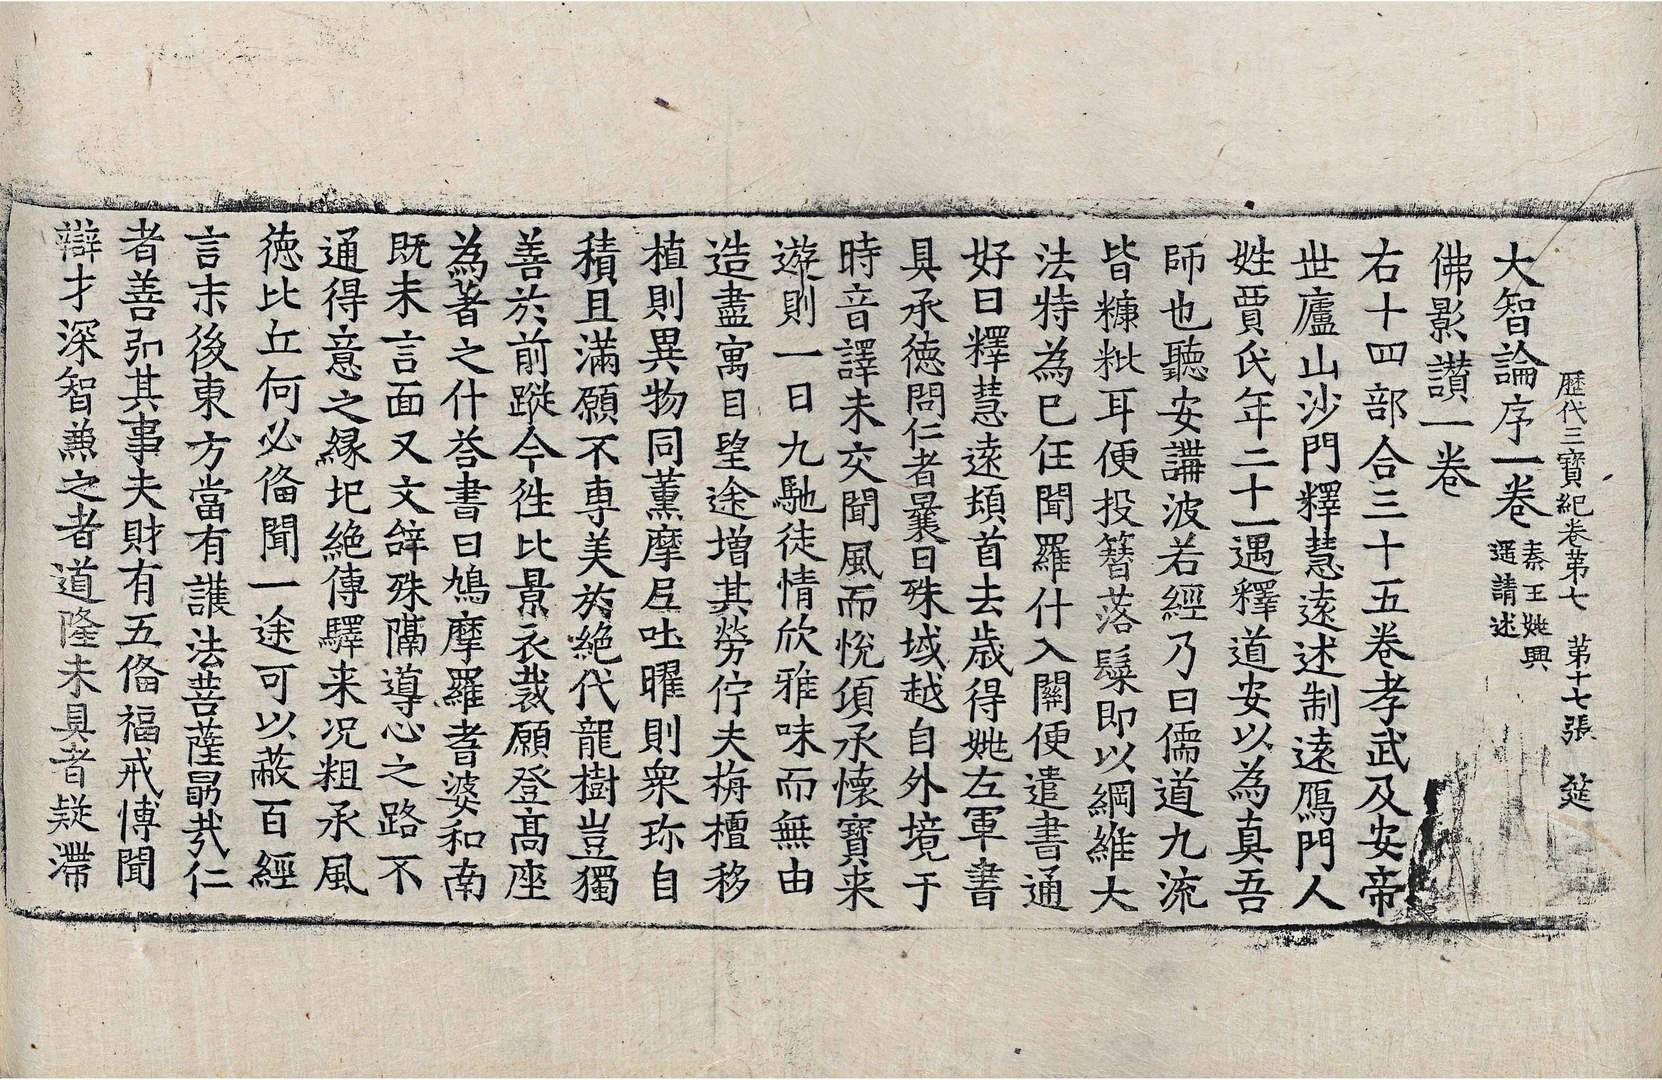 歷代三寶紀卷第七 第十七張 筵
大智論序一卷 秦王姚興
還請述
佛影讃一卷
右十四部合三十五卷孝武及安帝
世廬山沙門釋慧遠述制遠鴈門人
姓賈氏年二十一遇釋道安以為真吾
師也聽安講波若經乃曰儒道九流
皆糠粃耳便投簪落髮即以綱維大
法特為己任聞羅什入關便遣書通
好曰釋慧遠頓首去歲得姚左軍書
具承徳問仁者曩日殊域越自外境于
時音譯未交聞風而悅須承懷寶来
遊則一日九馳徒情欣雅味而無由
造盡寓目望途增其勞佇夫栴檀移
植則異物同薰摩尼吐曜則衆珎自
積且滿願不專美於絶代龍樹豈獨
善於前蹤今徃比景衣裁願登髙座
為著之什荅書曰鳩摩羅耆婆和南
既未言面又文辝殊隔導心之路不
通得意之縁圯絶傳驛来况粗承風
徳比丘何必俻聞一途可以蔽百經
言末後東方當有護法菩薩勗㢤仁
者善弘其事夫財有五俻福戒博聞
辯才深智兼之者道隆未具者疑滯